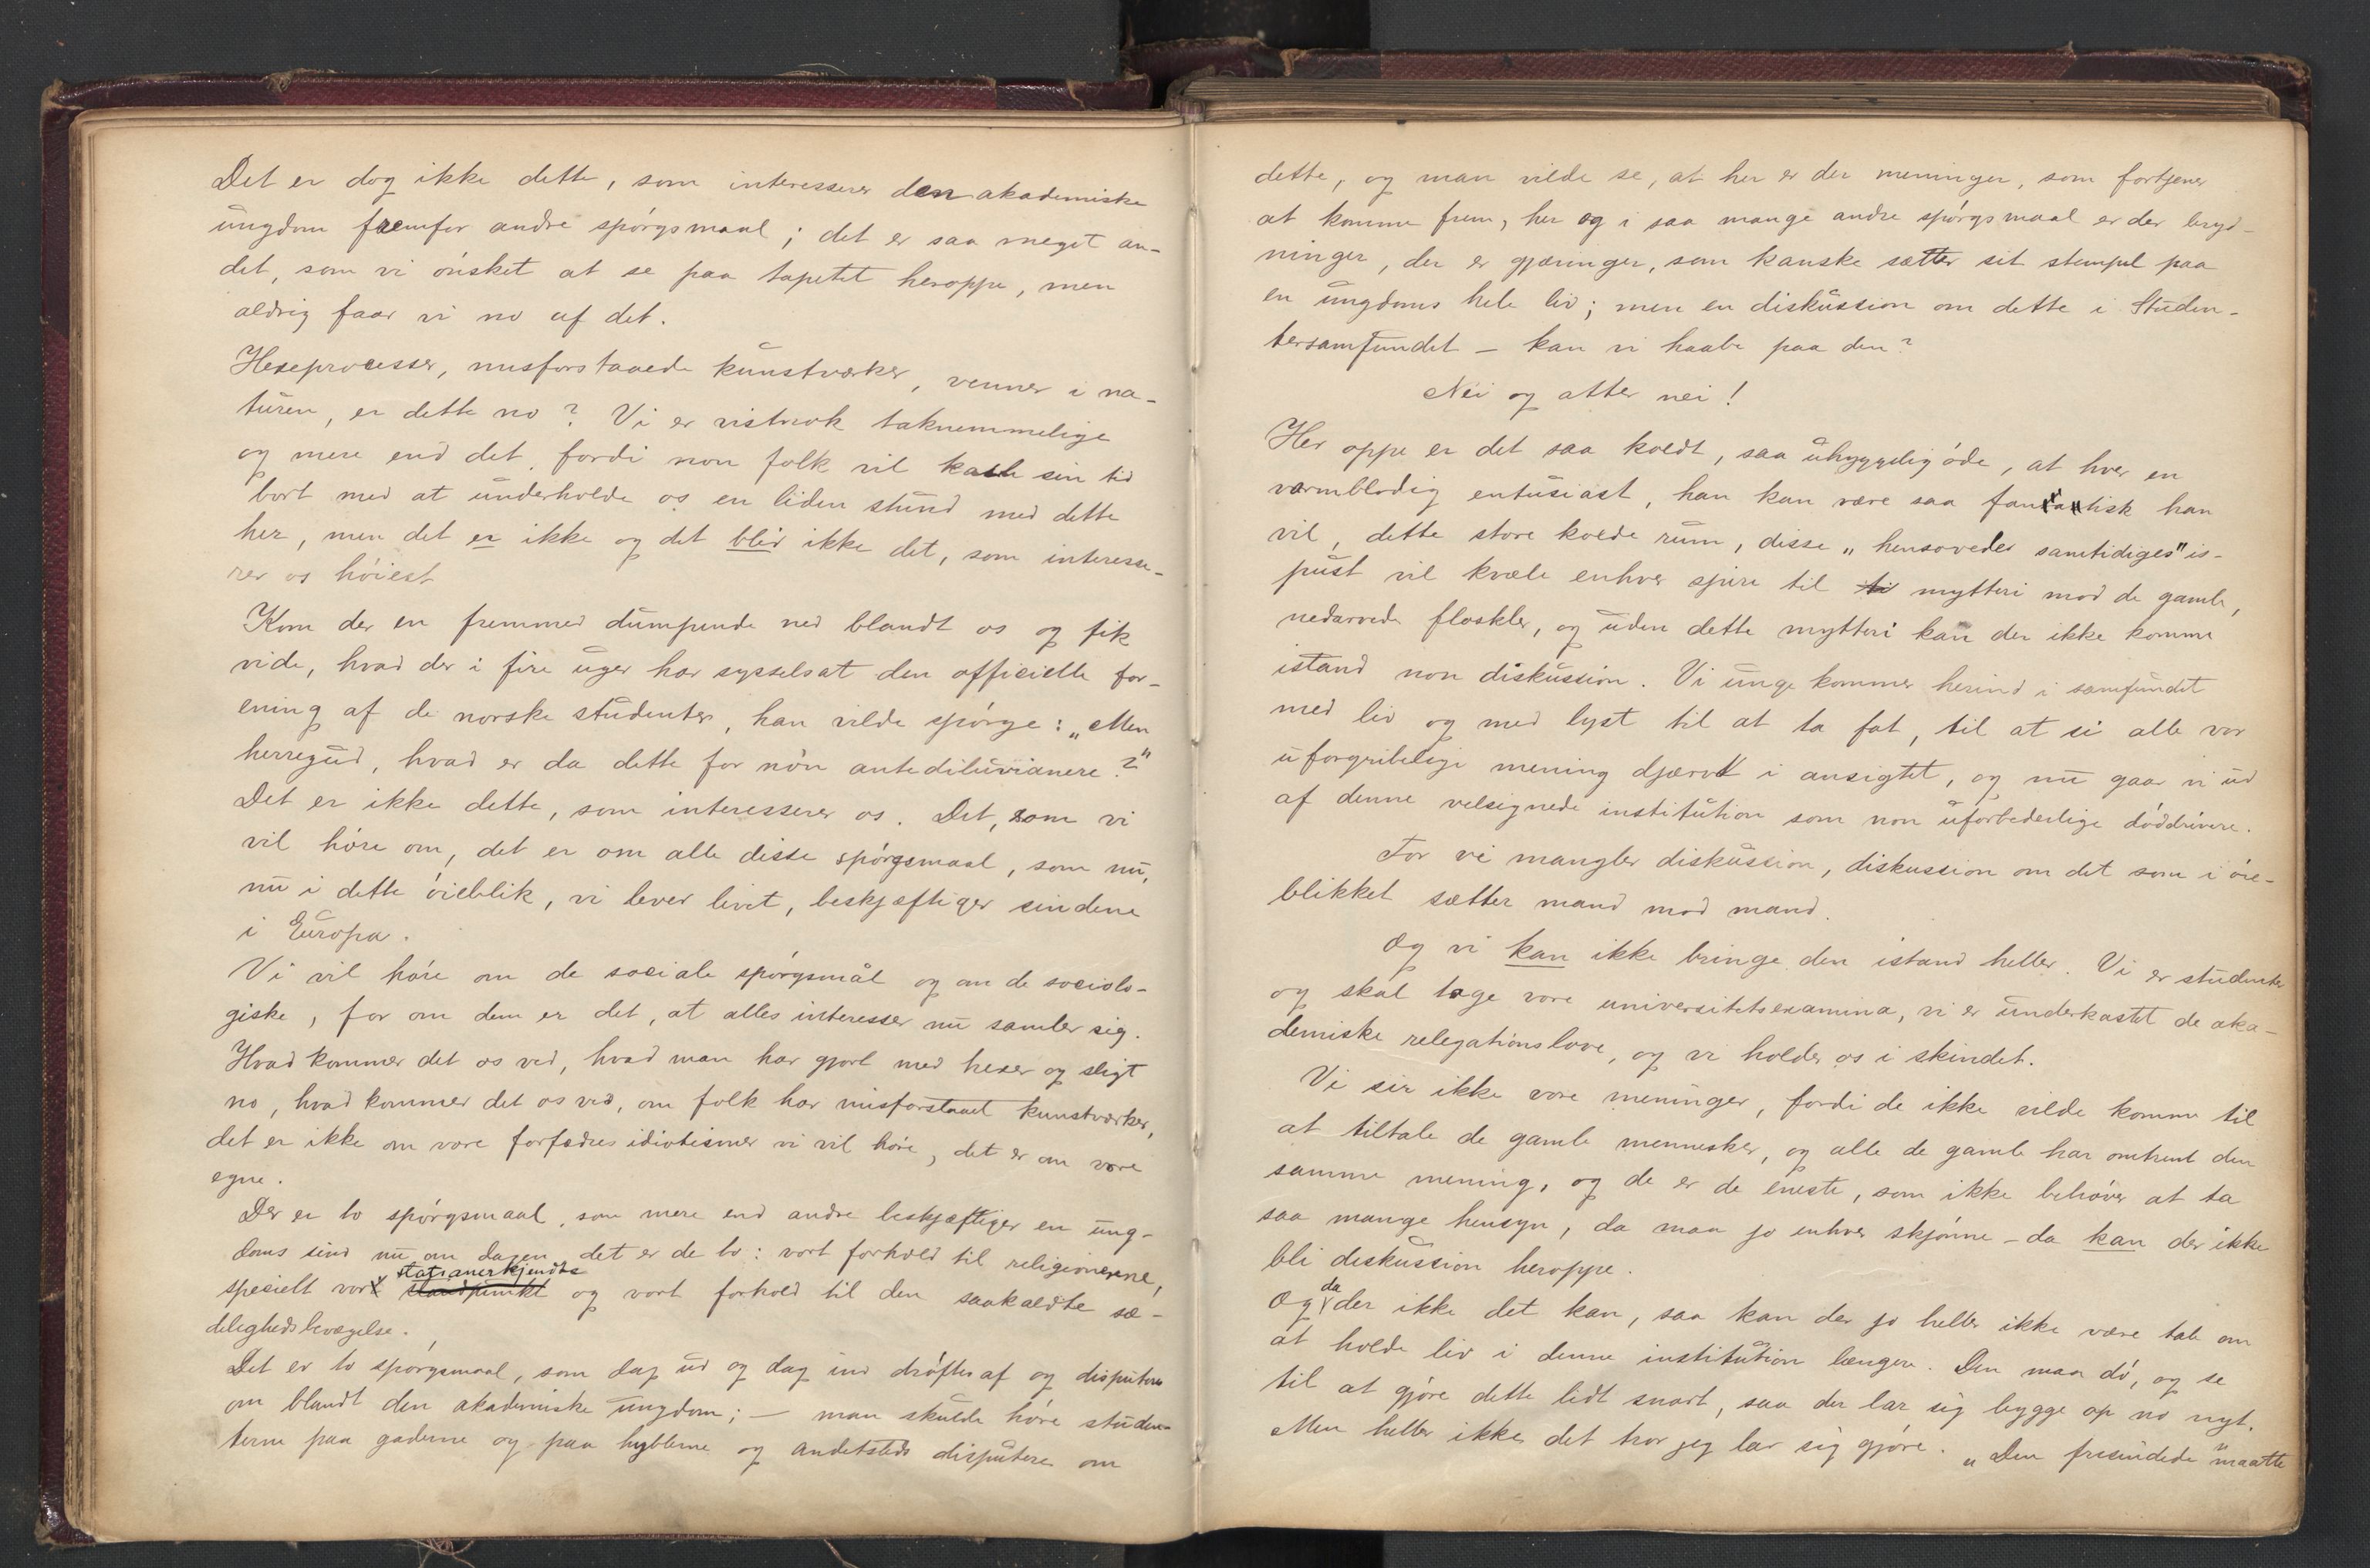 Det er dog ikke dette, som interesserer den akademiske
ungdom fremfor andre spørgsmaal; det er saa meget an-
det, som vi ønsket at se paa tapetet heroppe, men
aldrig faar vi no af det.
Hexeprocesser, misforstaaede kunstværker, venner i na-
turen, er dette no? Vi er vistnok taknemmelige
og mere end det, fordi non folk vil kaste sin tid
bort med at underholde os en liden stund med dette
her, men det er ikke og det blir ikke det, som interesse-
rer os høiest
Kom der en fremmed dumpende ned blandt os og fik
vide, hvad der i fire uger har sysselsat den officielle for-
ening af de norske studenter, han vilde spørge: „Men
herregud, hvad er da dette for non antediluvianere?"
Det er ikke dette, som interesserer os. Det, som vi
vil høre om, det er om alle disse spørgsmaal, som nu,
nu i dette øieblik, vi lever livet, beskjæftiger sindene
i Europa.
Vi vil høre om de sociale spørgsmål og om de sociolo-
giske, for om dem er det, at alles interesser nu samler sig.
Hvad kommer det os ved, hvad man har gjort med hexer og sligt
no, hvad kommer det os ved, om folk har misforstaaet kunstværker,
det er ikke om vore forfædres idiotismer vi vil høre, det er om vore
egne.
Der er to spørgsmaal, som mere end andre beskjæftiger en ung-
doms sind nu om dagen, det er de to: vort forhold til religionerne,
statsanerkjendte
specielt vor standpunkt og vort forhold til den saakaldte sæ-
delighedsbevægelse.
Det er to spørgsmaal, som dag ud og dag ind drøftes af og disputeres
om blandt den akademiske ungdom; — man skulde høre studen-
terne paa gaderne og paa hyblerne og andetsteds disputere om
dette, og man vilde se, at her er der meninger, som fortjener
at komme frem, her og i saa mange andre spørgsmaal er der bryd-
ninger, der er gjæringer, som kanske sætter sit stempel paa
en ungdoms hele liv; men en diskussion om dette i Studen-
tersamfundet — kan vi haabe paa den?
Nei og atter nei!
Her oppe er det saa koldt, saa uhyggelig øde, at hver en
varmblodig entusiast, han kan være saa fanatisk han
vil, dette store kolde rum, disse „hensovedes samtidiges" is-
pust vil kvæle enhver spire til ti mytteri mod de gamle,
nedarvede floskler, og uden dette mytteri kan der ikke komme
istand non diskussion. Vi unge kommer herind i samfundet
med liv og med lyst til at ta fat, til at si alle vor
uforgribelige mening djærvt i ansigtet, og nu gaar vi ud
af denne velsignede institution som non uforbederlige døddrivere.
For vi mangler diskussion, diskussion om det som i øie-
blikket sætter mand mod mand.
Og vi kan ikke bringe den istand heller. Vi er studenter
og skal tage vore universitetsexamina, vi er underkastet de aka-
demiske relegationslove, og vi holder os i skindet.
Vi sir ikke vore meninger, fordi de ikke vilde komme til
at tiltale de gamle mennesker, og alle de gamle har omtrent den
samme mening, og de er de eneste, som ikke behøver at ta
saa mange hensyn, da maa jo enhver skjønne - da kan der ikke
bli diskussion heroppe.
Og da der ikke det kan, saa kan der jo heller ikke være tale om
at holde liv i denne institution længere. Den maa dø, og se
til at gjøre dette lidt snart, saa der lar sig bygge op no nyt.
Men heller ikke det tror jeg lar sig gjøre. „Den frisindede" maatte